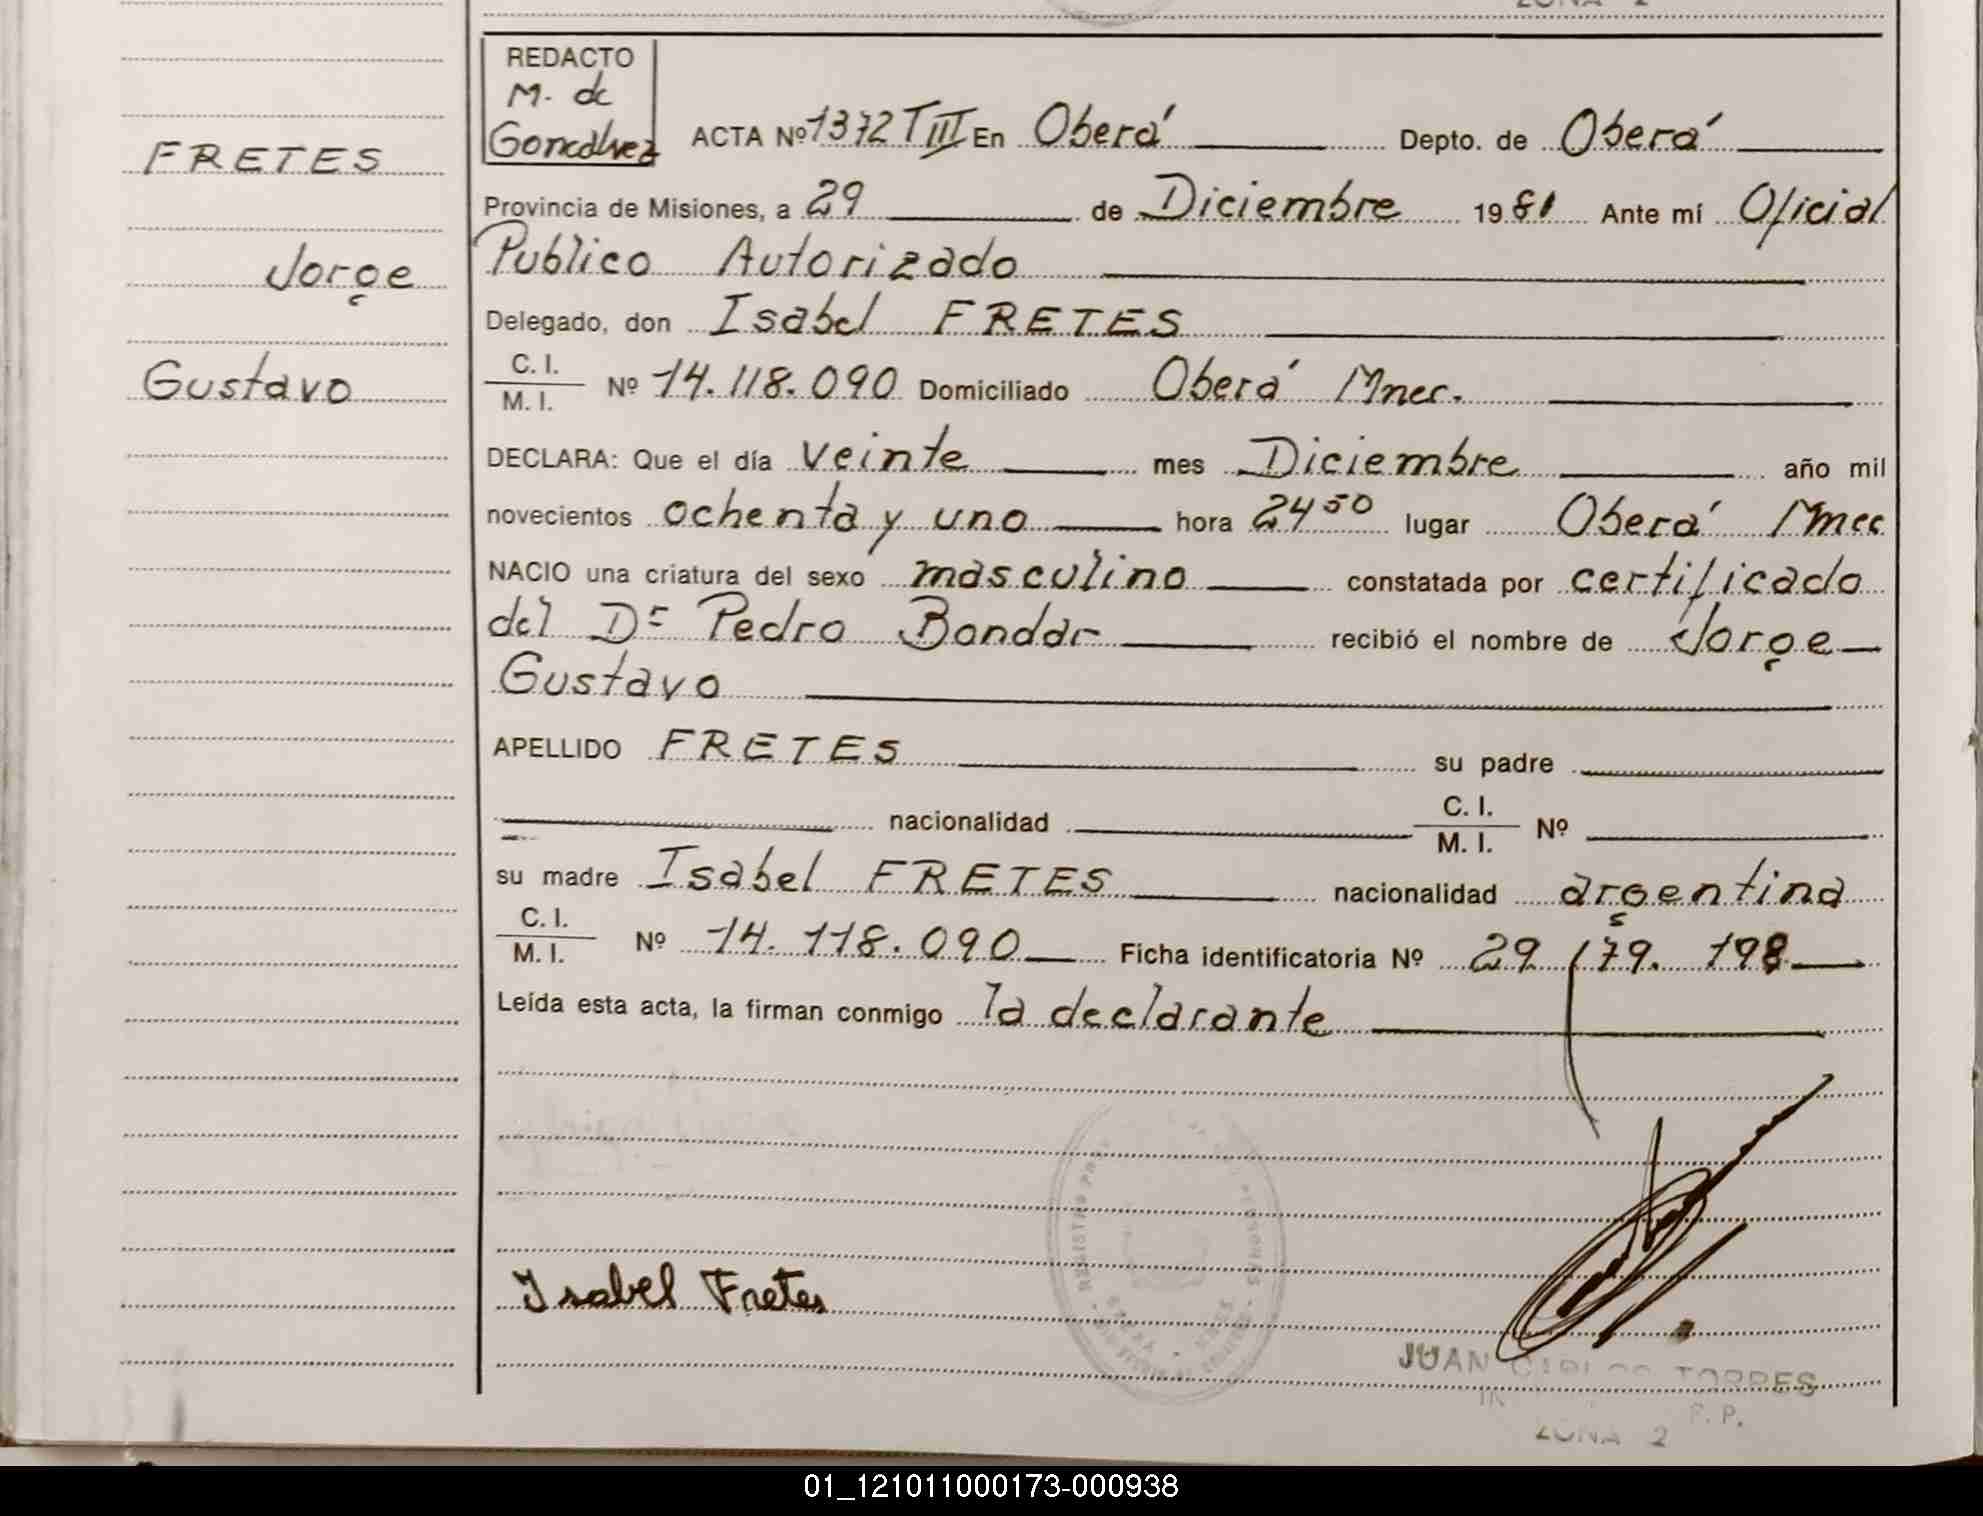 ZONA 2
REDACTO
M. de
Goncalvez
ACTA Nº 1372 T III En Oberá Depto. de Oberá
FRETES
Provincia de Misiones, a 29 de Diciembre 1981 Ante mí Oficial
Publico Autorizado
Jorge
Delegado, don Isabel FRETES
C. I.
M. I. Nº 14.118.090 Domiciliado Oberá Mnes.
Gustavo
DECLARA: Que el día veinte mes Diciembre año mil
novecientos ochenta y uno hora 24 50 lugar Oberá Mnes
NACIO una criatura del sexo masculino constatada por certificado
del Dr Pedro Bondar recibió el nombre de Jorge
Gustavo
APELLIDO FRETES su padre
nacionalidad C. I.
M. I. Nº
su madre Isabel FRETES nacionalidad argentina
C. I.
M. I. Nº 14.118.090 Ficha identificatoria Nº 29 179. 198
Leída esta acta, la firman conmigo la declarante
Isabel Fretes
JUAN CARLOS TORRES
ZONA 2
01_121011000173-000938